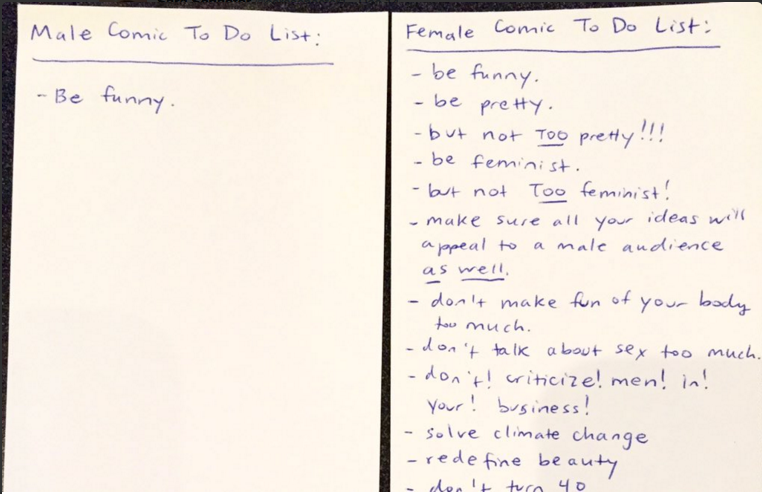 Male Comic To Do List:
- Be funny.
Female Comic To Do List:
- be funny.
- be pretty.
- but not TOO pretty!!!
- be feminist.
- but not TOO feminist!
- make sure all your ideas will
appeal to a male audience
as well.
- don't make fun of your body
too much.
- don't talk about sex too much.
- don't! criticize! men! in!
your! business!
- solve climate change
- redefine beauty
- don't turn 40